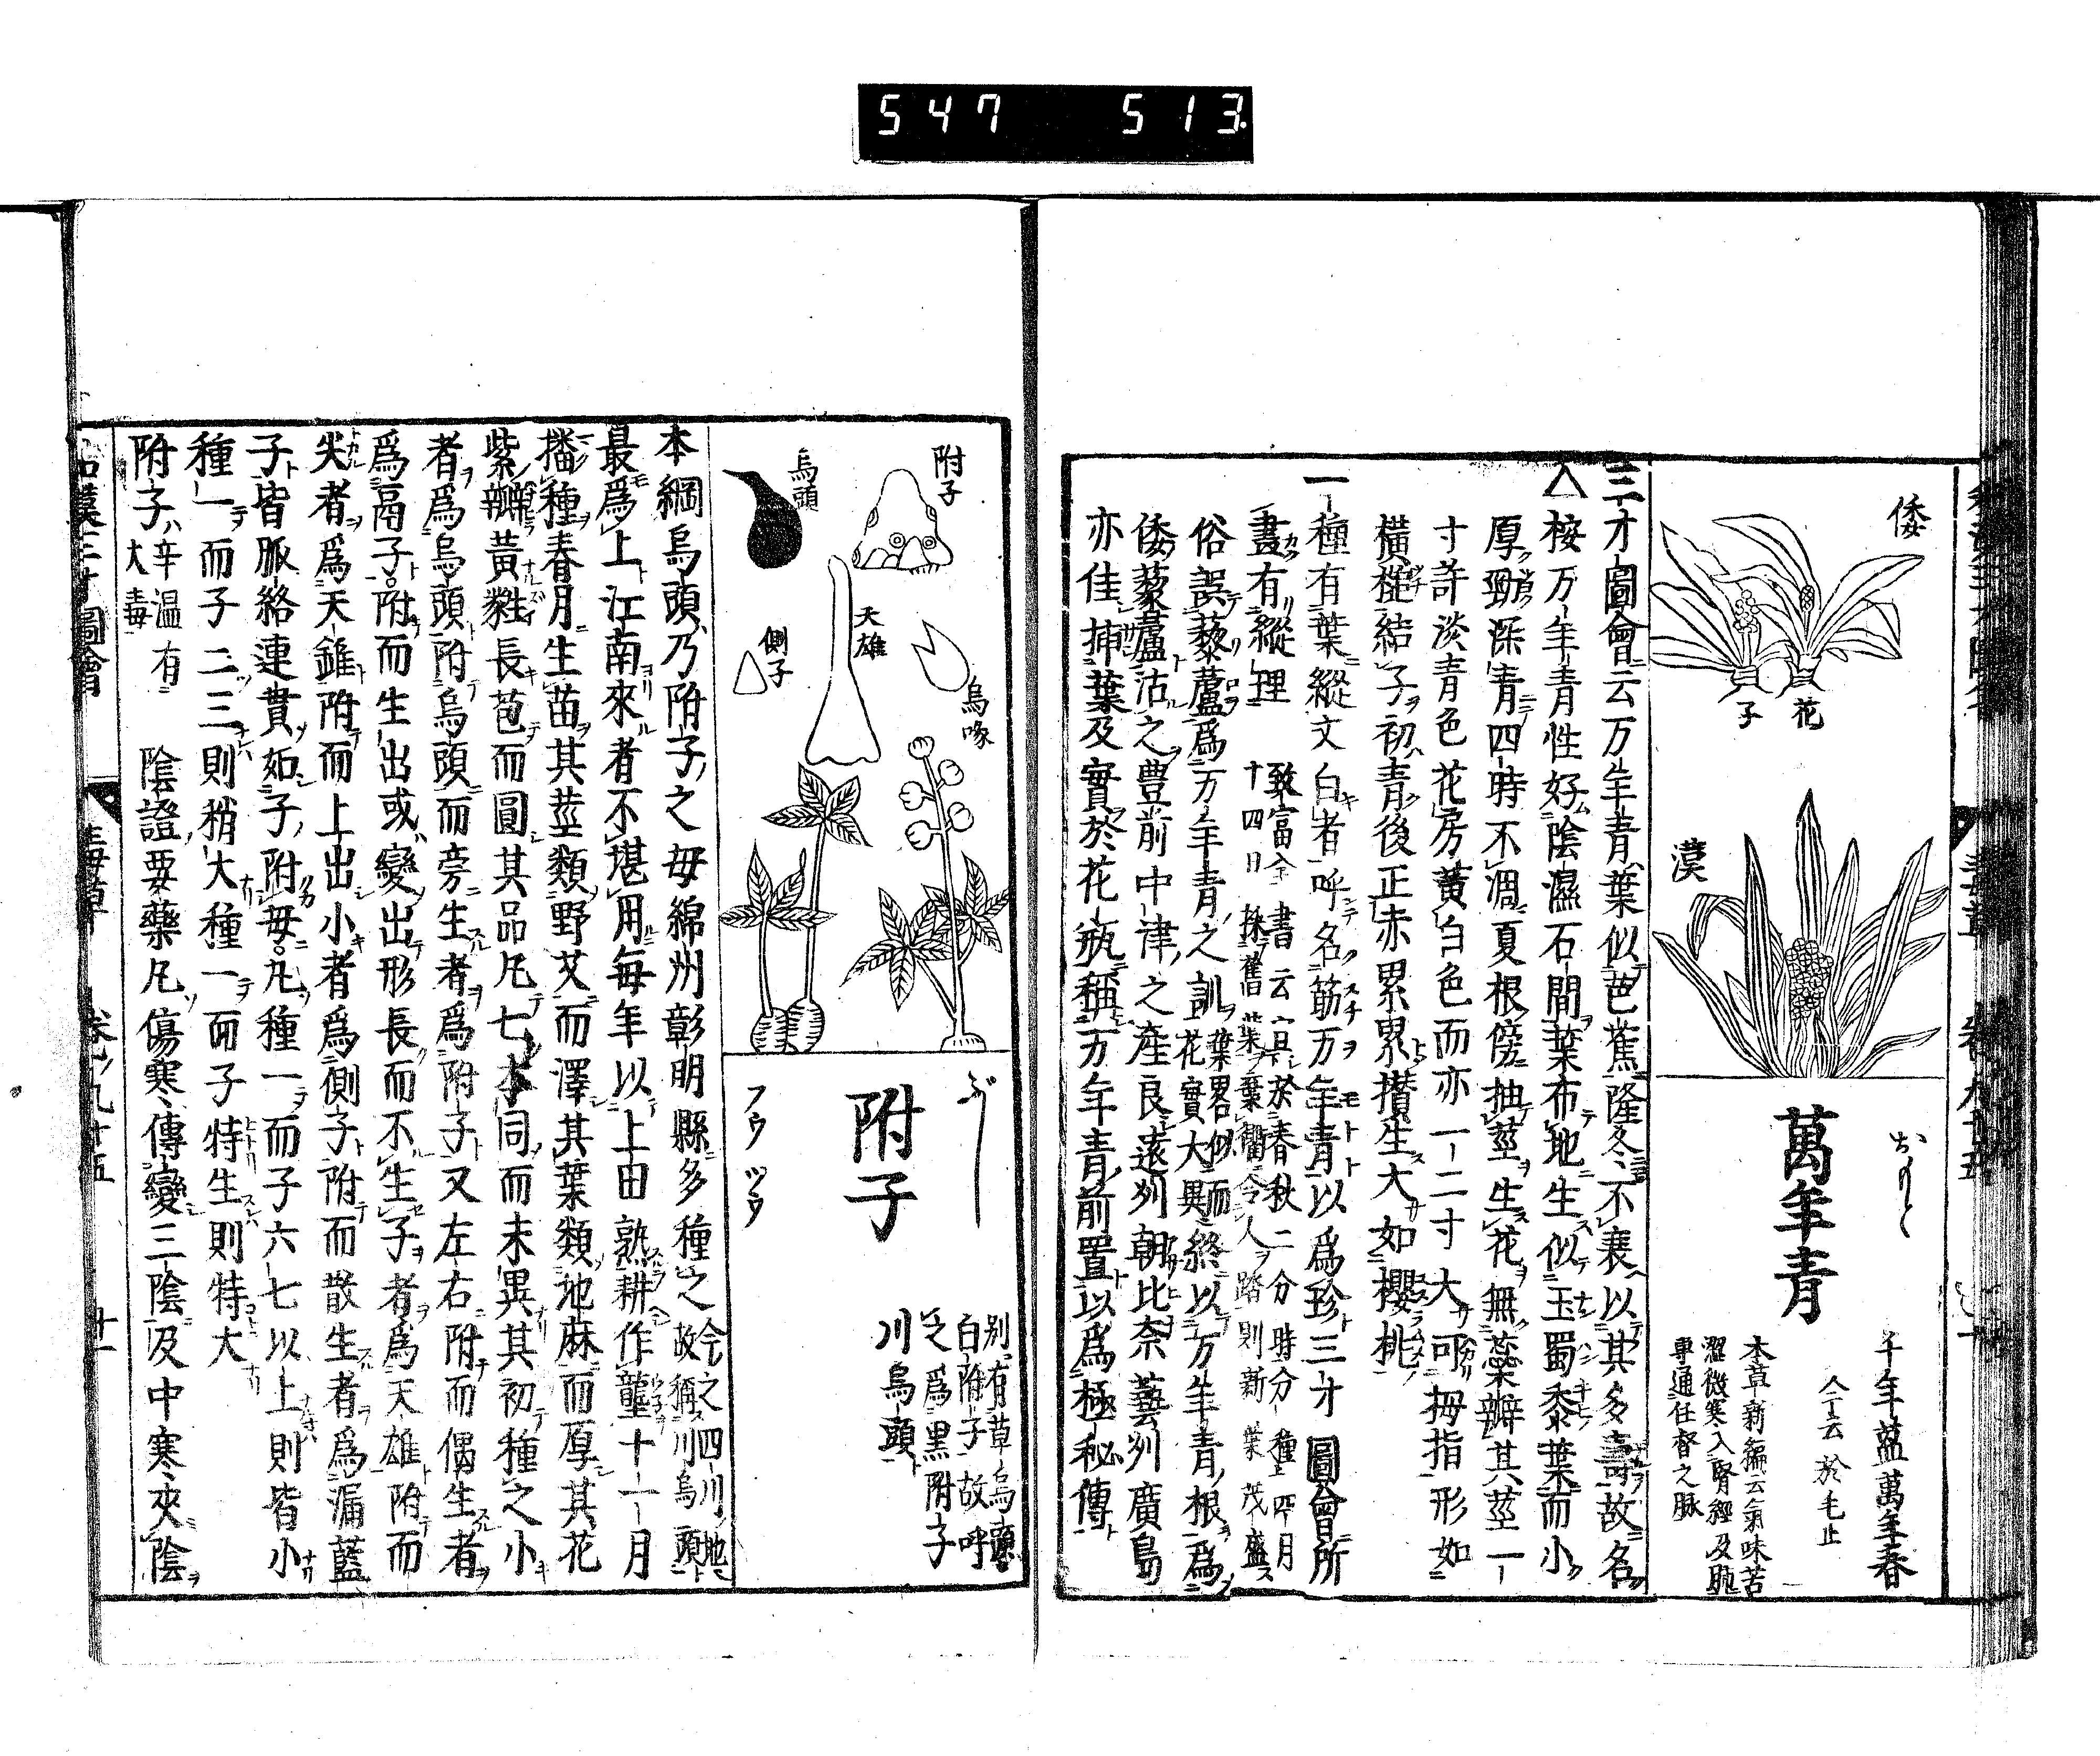 547 513
倭
花
子
漢
おもと
萬年青
千年蒀 萬年春
人云 於毛止
本草新編云氣味苦
澀微寒入腎經及
專通任督之脉
三才圖會云万年青葉似芭蕉隆冬不衰以其多壽故名
△桉万年青性好陰濕石間葉布地生似玉蜀黍葉而小
厚勁深青四時不凋夏根傍抽莖生花無蘂瓣其莖一
寸許淡青色花房黃白色而亦一二寸大可拇指形如
橫槌結子初青後正赤累累攅生大如櫻桃
一種有葉縱文白者呼名筋万年青以爲珍三才圖會所
畫有縱理 致富全書云宜於春秋二分時分種四月
十四日採舊葉葉 令人踏則新葉茂盛
俗誤藜蘆爲万年青之訓 葉畧似而
花實大異 終以万年青根爲
倭藜蘆沽之豊前中津之産良遠州朝比奈藝州廣島
亦佳挿葉及實於花瓶稱万年青前置以爲極秘傳
和漢三才圖會 毒草 卷ノ九十五 十一
附子
烏頭
天雄
側子
烏喙
ぶし
附子
フウ ツウ
別有草烏頭
白附子故呼
之爲黑附子
川烏頭
本綱烏頭乃附子之毋綿州彰明縣多種之 今之四川地
故稱川烏頭
最爲上江南來者不堪用毎年以上田熟耕作壟十一月
播種春月生苗其莖類野艾而澤其葉類地麻而厚其花
紫瓣黃蕤長苞而圓其品凡七本同而末異其初種之小
者爲烏頭附烏頭而旁生者爲附子又左右附而偶生者
爲鬲子附而生出或變出形長而不生子者爲天雄附而
尖者爲天錐附而上出小者爲側子附而散生者爲漏藍
子皆脈絡連貫如子附毋凡種一而子六七以上則皆小
種一而子二三則稍大種一而子特生則特大
附子 辛温有
大毒 陰證要藥凡傷寒傳變三陰及中寒夾陰